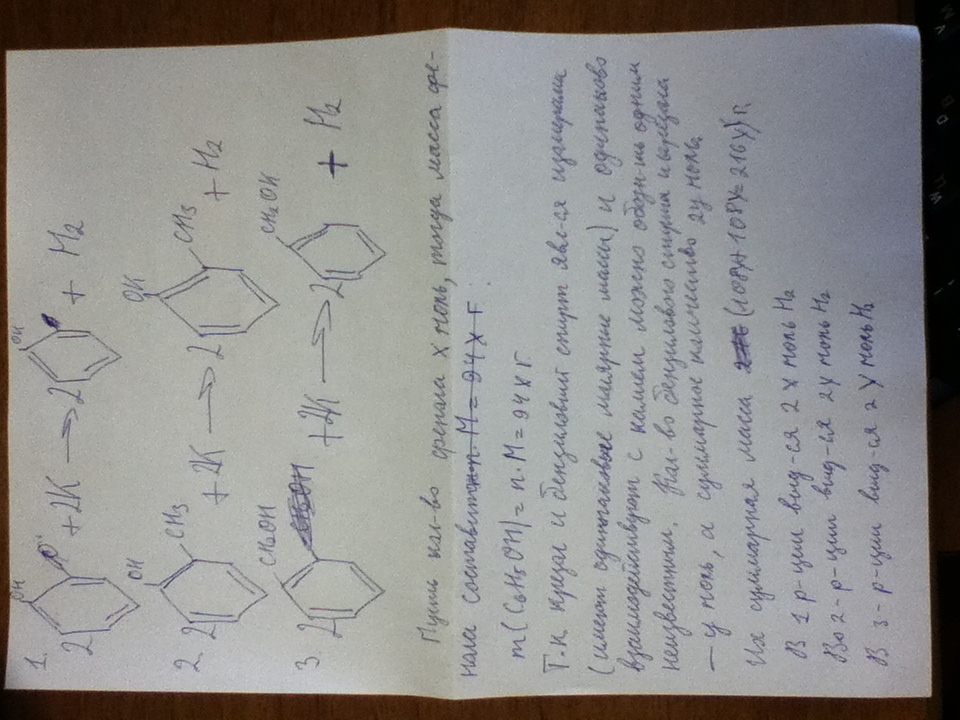 1. 2 OH + 2K → 2 OH + H2
2. 2 OH CH3 + 2K → 2 OK CH3 + H2
3. 2 CH2OH + 2K → 2 CH2OK + H2
Пусть кол-во фенола x моль, тогда масса фе-
нола составит
m(C6H5OH) = n·M = 94x г.
Т.к крезол и бензиловый спирт явл-ся изомерами
(имеют одинаковые молярные массы) и одинаково
взаимодействуют с калием можно обозн-ть одним
неизвестным. Кол-во бензилового спирта и крезола
– y моль, а суммарное количество 2y моль.
Их суммарная масса (108y+108y=216y) г.
В 1 р-ции выд-ся 2x моль H2
Во 2-р-ции выд-ся 2y моль H2
В 3-р-ции выд-ся 2y моль H2